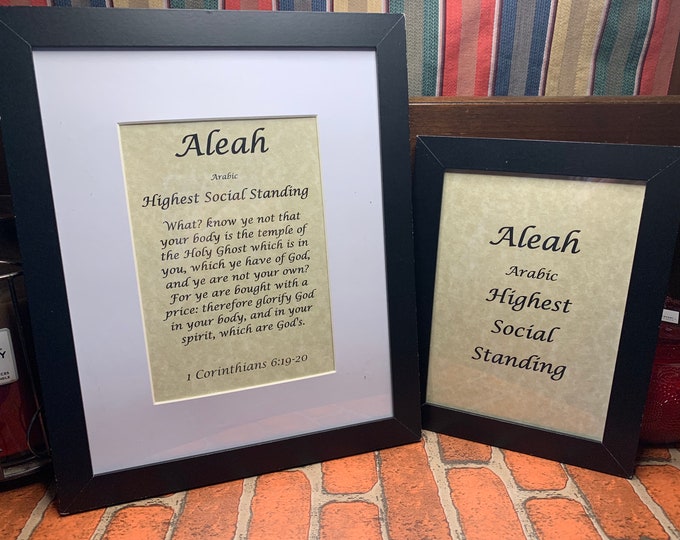 Aleah
Arabic
Highest Social Standing
What? know ye not that
your body is the temple of
the Holy Ghost which is in
you, which ye have of God,
and ye are not your own?
For ye are bought with a
price: therefore glorify God
in your body, and in your
spirit, which are God's.
1 Corinthians 6:19-20
Aleah
Arabic
Highest
Social
Standing